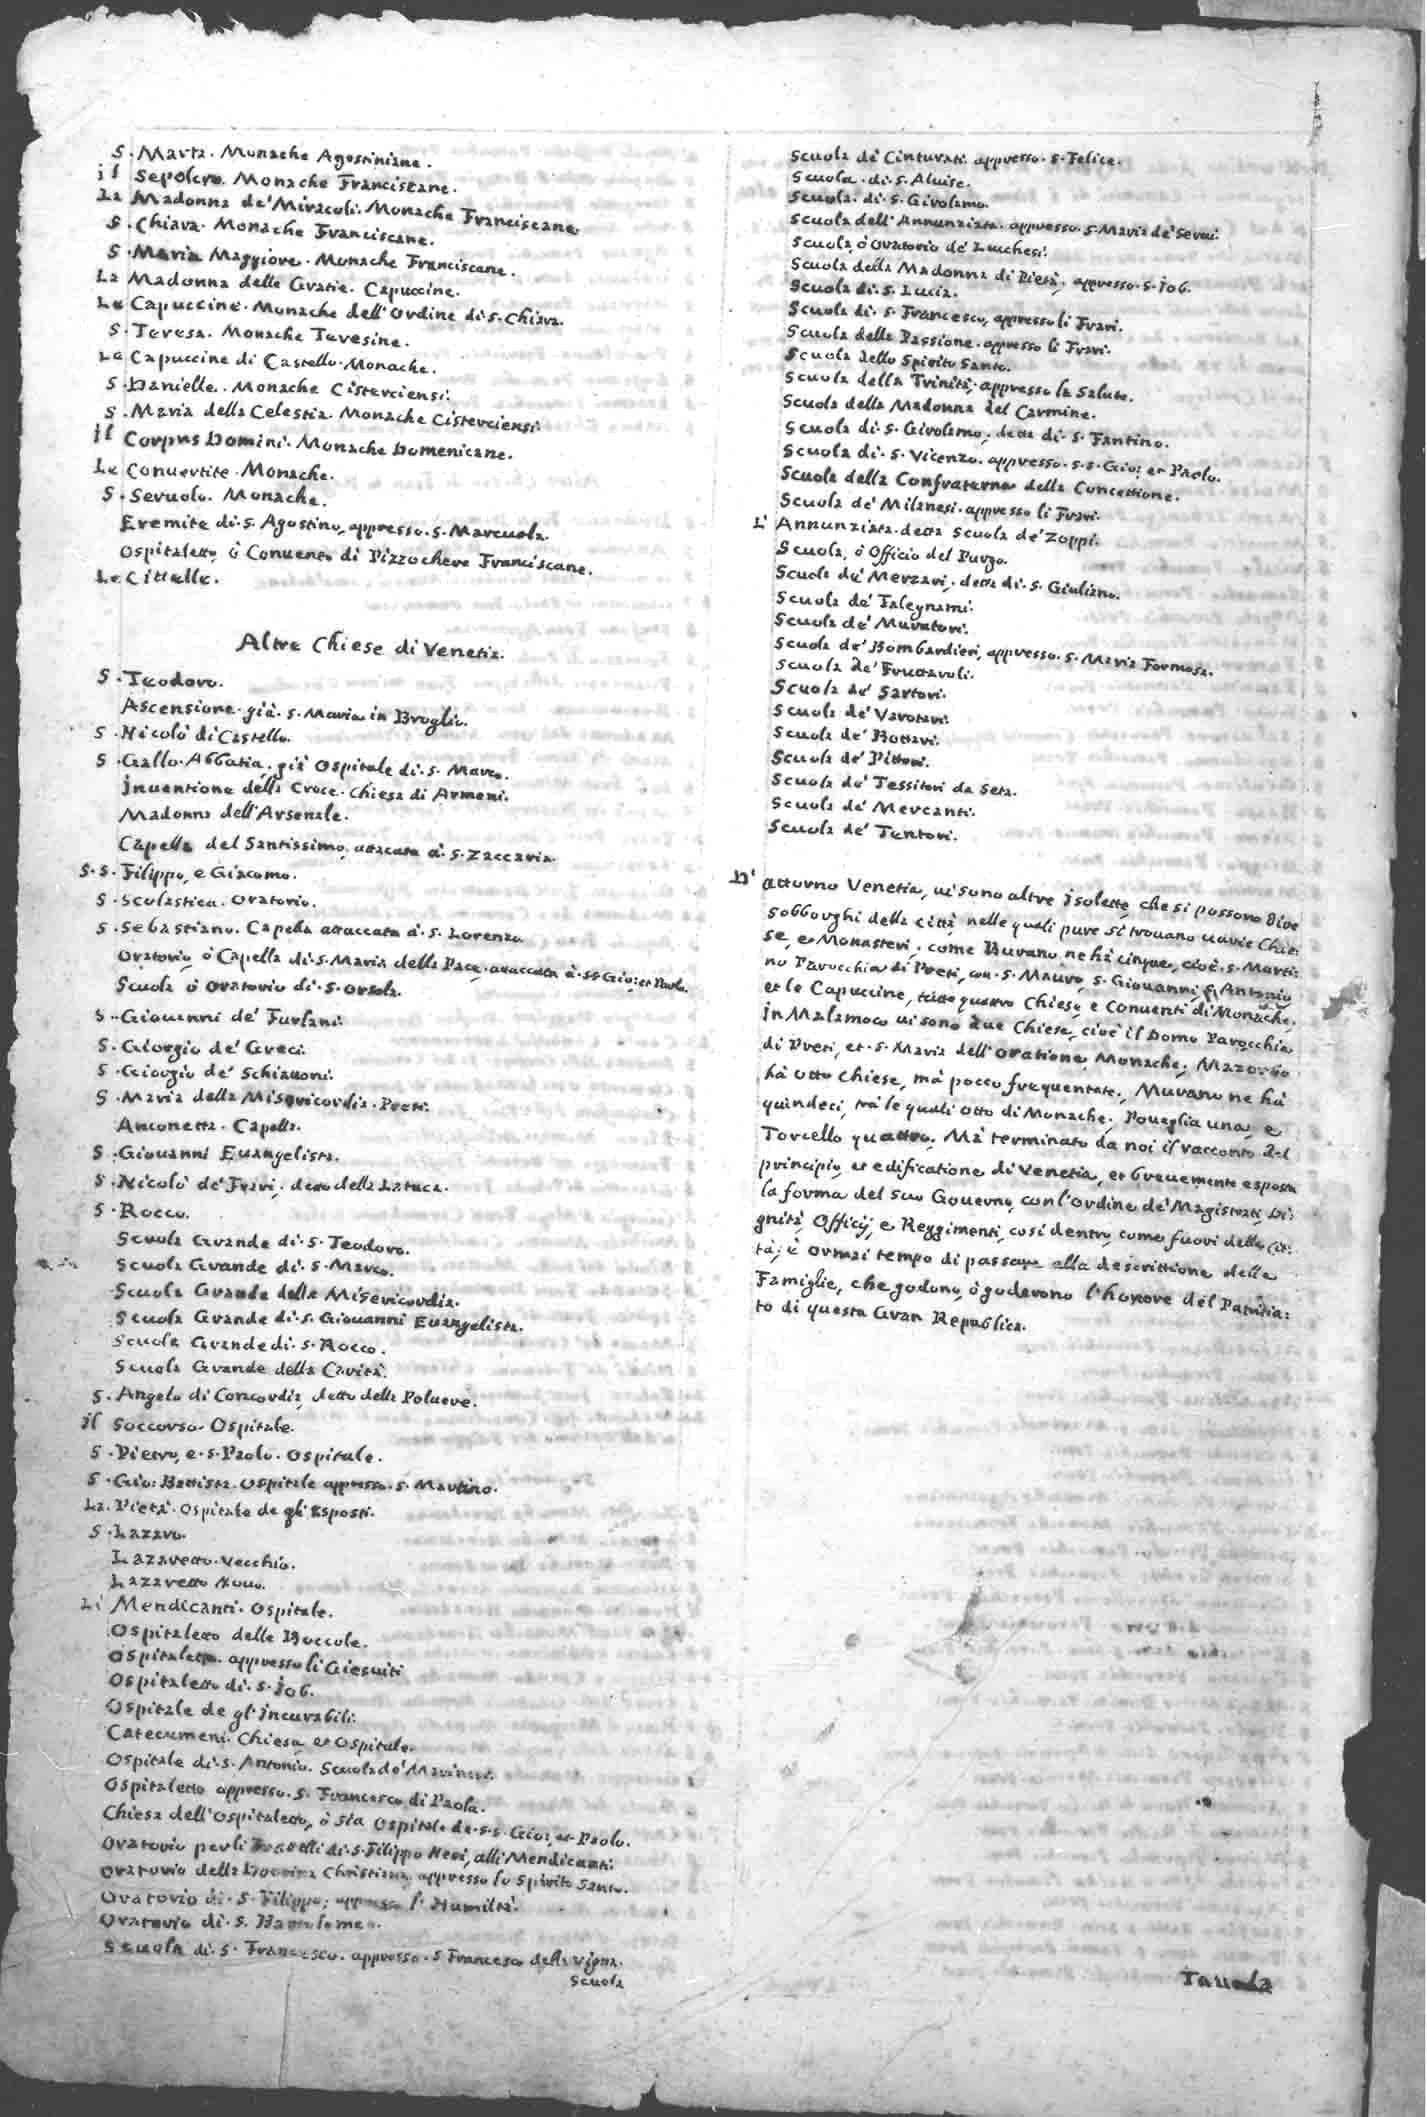 S. Marta. Monache Agostiniane.
il Sepolcro. Monache Franciscane.
La Madonna de' Miracoli. Monache Franciscane.
S. Chiara. Monache Franciscane.
S. Maria Maggiore. Monache Franciscane.
La Madonna delle Gratie. Capuccine.
Le Capuccine. Monache dell'Ordine di S. Chiara.
S. Teresa. Monache Teresine.
Le Capuccine di Castello. Monache.
S. Danielle. Monache Cisterciensi.
S. Maria della Celestia. Monache Cisterciensi.
il Corpus Domini. Monache Domenicane.
Le Conuertite. Monache.
S. Seruolo. Monache.
Eremite di S. Agostino, appresso S. Marcuola.
Ospitaletto, ò Conuento di Pizzochere Franciscane.
Le Citelle.
Altre Chiese di Venetia.
S. Teodoro.
Ascensione. già S. Maria in Broglio.
S. Nicolò di Castello.
S. Gallo. Abbatia, già Ospitale di S. Marco.
Inuentione della Croce. Chiesa di Armeni.
Madonna dell'Arsenale.
Capella del Santissimo, attacata à S. Zaccaria.
S.S. Filippo, e Giacomo.
S. Scolastica. Oratorio.
S. Sebastiano. Capella attaccata à S. Lorenzo.
Oratorio, ò Capella di S. Maria della Pace, attaccata à SS. Gio: et Paolo.
Scuola ò Oratorio di S. Orsola.
S. Giouanni de' Furlani.
S. Giorgio de' Greci.
S. Giorgio de' Schiauoni.
S. Maria della Misericordia. Preti.
Anconetta. Capella.
S. Giouanni Euangelista.
S. Nicolò de' Frari, detto della Latuca.
S. Rocco.
Scuola Grande di S. Teodoro.
Scuola Grande di S. Marco.
Scuola Grande della Misericordia.
Scuola Grande di S. Giouanni Euangelista.
Scuola Grande di S. Rocco.
Scuola Grande della Carità.
S. Angelo di Concordia, detto della Poluere.
il Soccorso. Ospitale.
S. Pietro, e S. Paolo. Ospitale.
S. Gio: Battista. Ospitale appresso S. Martino.
La Pietà. Ospitale de gl'Esposti.
S. Lazaro.
Lazaretto Vecchio.
Lazaretto Nouo.
Li Mendicanti. Ospitale.
Ospitaletto delle Boccole.
Ospitaletto. appresso li Giesuiti
Ospitaletto di S. Iob.
Ospitale de gl'Incurabili.
Catecumeni. Chiesa, et Ospitale.
Ospitale di S. Antonio. Scuola de' Marineri.
Ospitaletto appresso S. Francesco di Paola.
Chiesa dell'Ospitaletto, ò sia Ospitale de S.S. Gio: et Paolo.
Oratorio per li Fratelli di S. Filippo Neri, alli Mendicanti.
Oratorio della Dottrina Christiana, appresso lo Spirito Santo.
Oratorio di S. Filippo, appresso l'Humiltà.
Oratorio di S. Bartolomeo.
Scuola di S. Francesco. appresso S. Francesco della Vigna.
Scuola
Scuola de' Cinturati. appresso S. Felice.
Scuola di S. Aluise.
Scuola di S. Girolamo.
Scuola dell'Annunziata. appresso S. Maria de' Serui.
Scuola, ò Oratorio de' Lucchesi.
Scuola della Madonna di Pietà, appresso S. Iob.
Scuola di S. Lucia.
Scuola di S. Francesco, appresso li Frari.
Scuola della Passione. appresso li Frari.
Scuola dello Spirito Santo.
Scuola della Trinità, appresso la Salute.
Scuola della Madonna del Carmine.
Scuola di S. Girolamo, detta di S. Fantino.
Scuola di S. Vicenzo. appresso S.S. Gio: et Paolo.
Scuola della Confraterna della Concettione.
Scuola de' Milanesi. appresso li Frari.
L' Annunziata. detta Scuola de' Zoppi.
Scuola, ò Officio del Purgo.
Scuola de' Merzari, detta di S. Giuliano.
Scuola de' Falegnami.
Scuola de' Muratori.
Scuola de' Bombardieri, appresso S. Maria Formosa.
Scuola de' Fruttaroli.
Scuola de' Sartori.
Scuola de' Varotari.
Scuola de' Bottari.
Scuola de' Pittori.
Scuola de' Tessitori da Seta.
Scuola de' Mercanti.
Scuola de' Tentori.
D' atturno Venetia, ui sono altre Isolette, che si possono dire
sobborghi della città nelle quali pure si trouano uarie Chie:
se, e Monasteri, come Burano ne hà cinque, cioè S. Marti:
no Parocchia di Preti, con S. Mauro, S. Giouanni, S. Antonio
et le Capuccine, tutte quattro Chiese, e Conuenti di Monache.
In Malamoco ui sono due Chiese, cioè il Domo Parocchia
di Preti, et S. Maria dell'Oratione, Monache, Mazorbo
hà otto Chiese, mà pocco frequentate, Murano ne hà
quindeci, trà le quali otto di Monache, Poueglia una, e
Torcello quattro. Mà terminato da noi il racconto del
principio, et edificatione di Venetia, et breuemente esposta
la forma del suo Gouerno, con l'ordine de' Magistrati, Di:
gnità, Officij, e Reggimenti, così dentro, come fuori della Cit:
tà; è ormai tempo di passare alla descrittione delle
Famiglie, che godono, ò goderono l'honore del Patritia:
to di questa Gran Republica.
Tauola